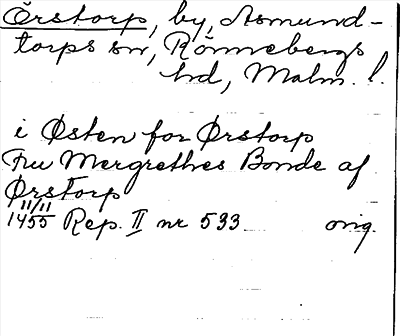 Örstorp, by, Asmund-
torps sn, Rönnebergs
hd, Malm. l.
i Østen for Ørstorp
Fru Mergrethes Bonde af
Ørstorp
11/11
1455 Rep. II nr 533 orig.